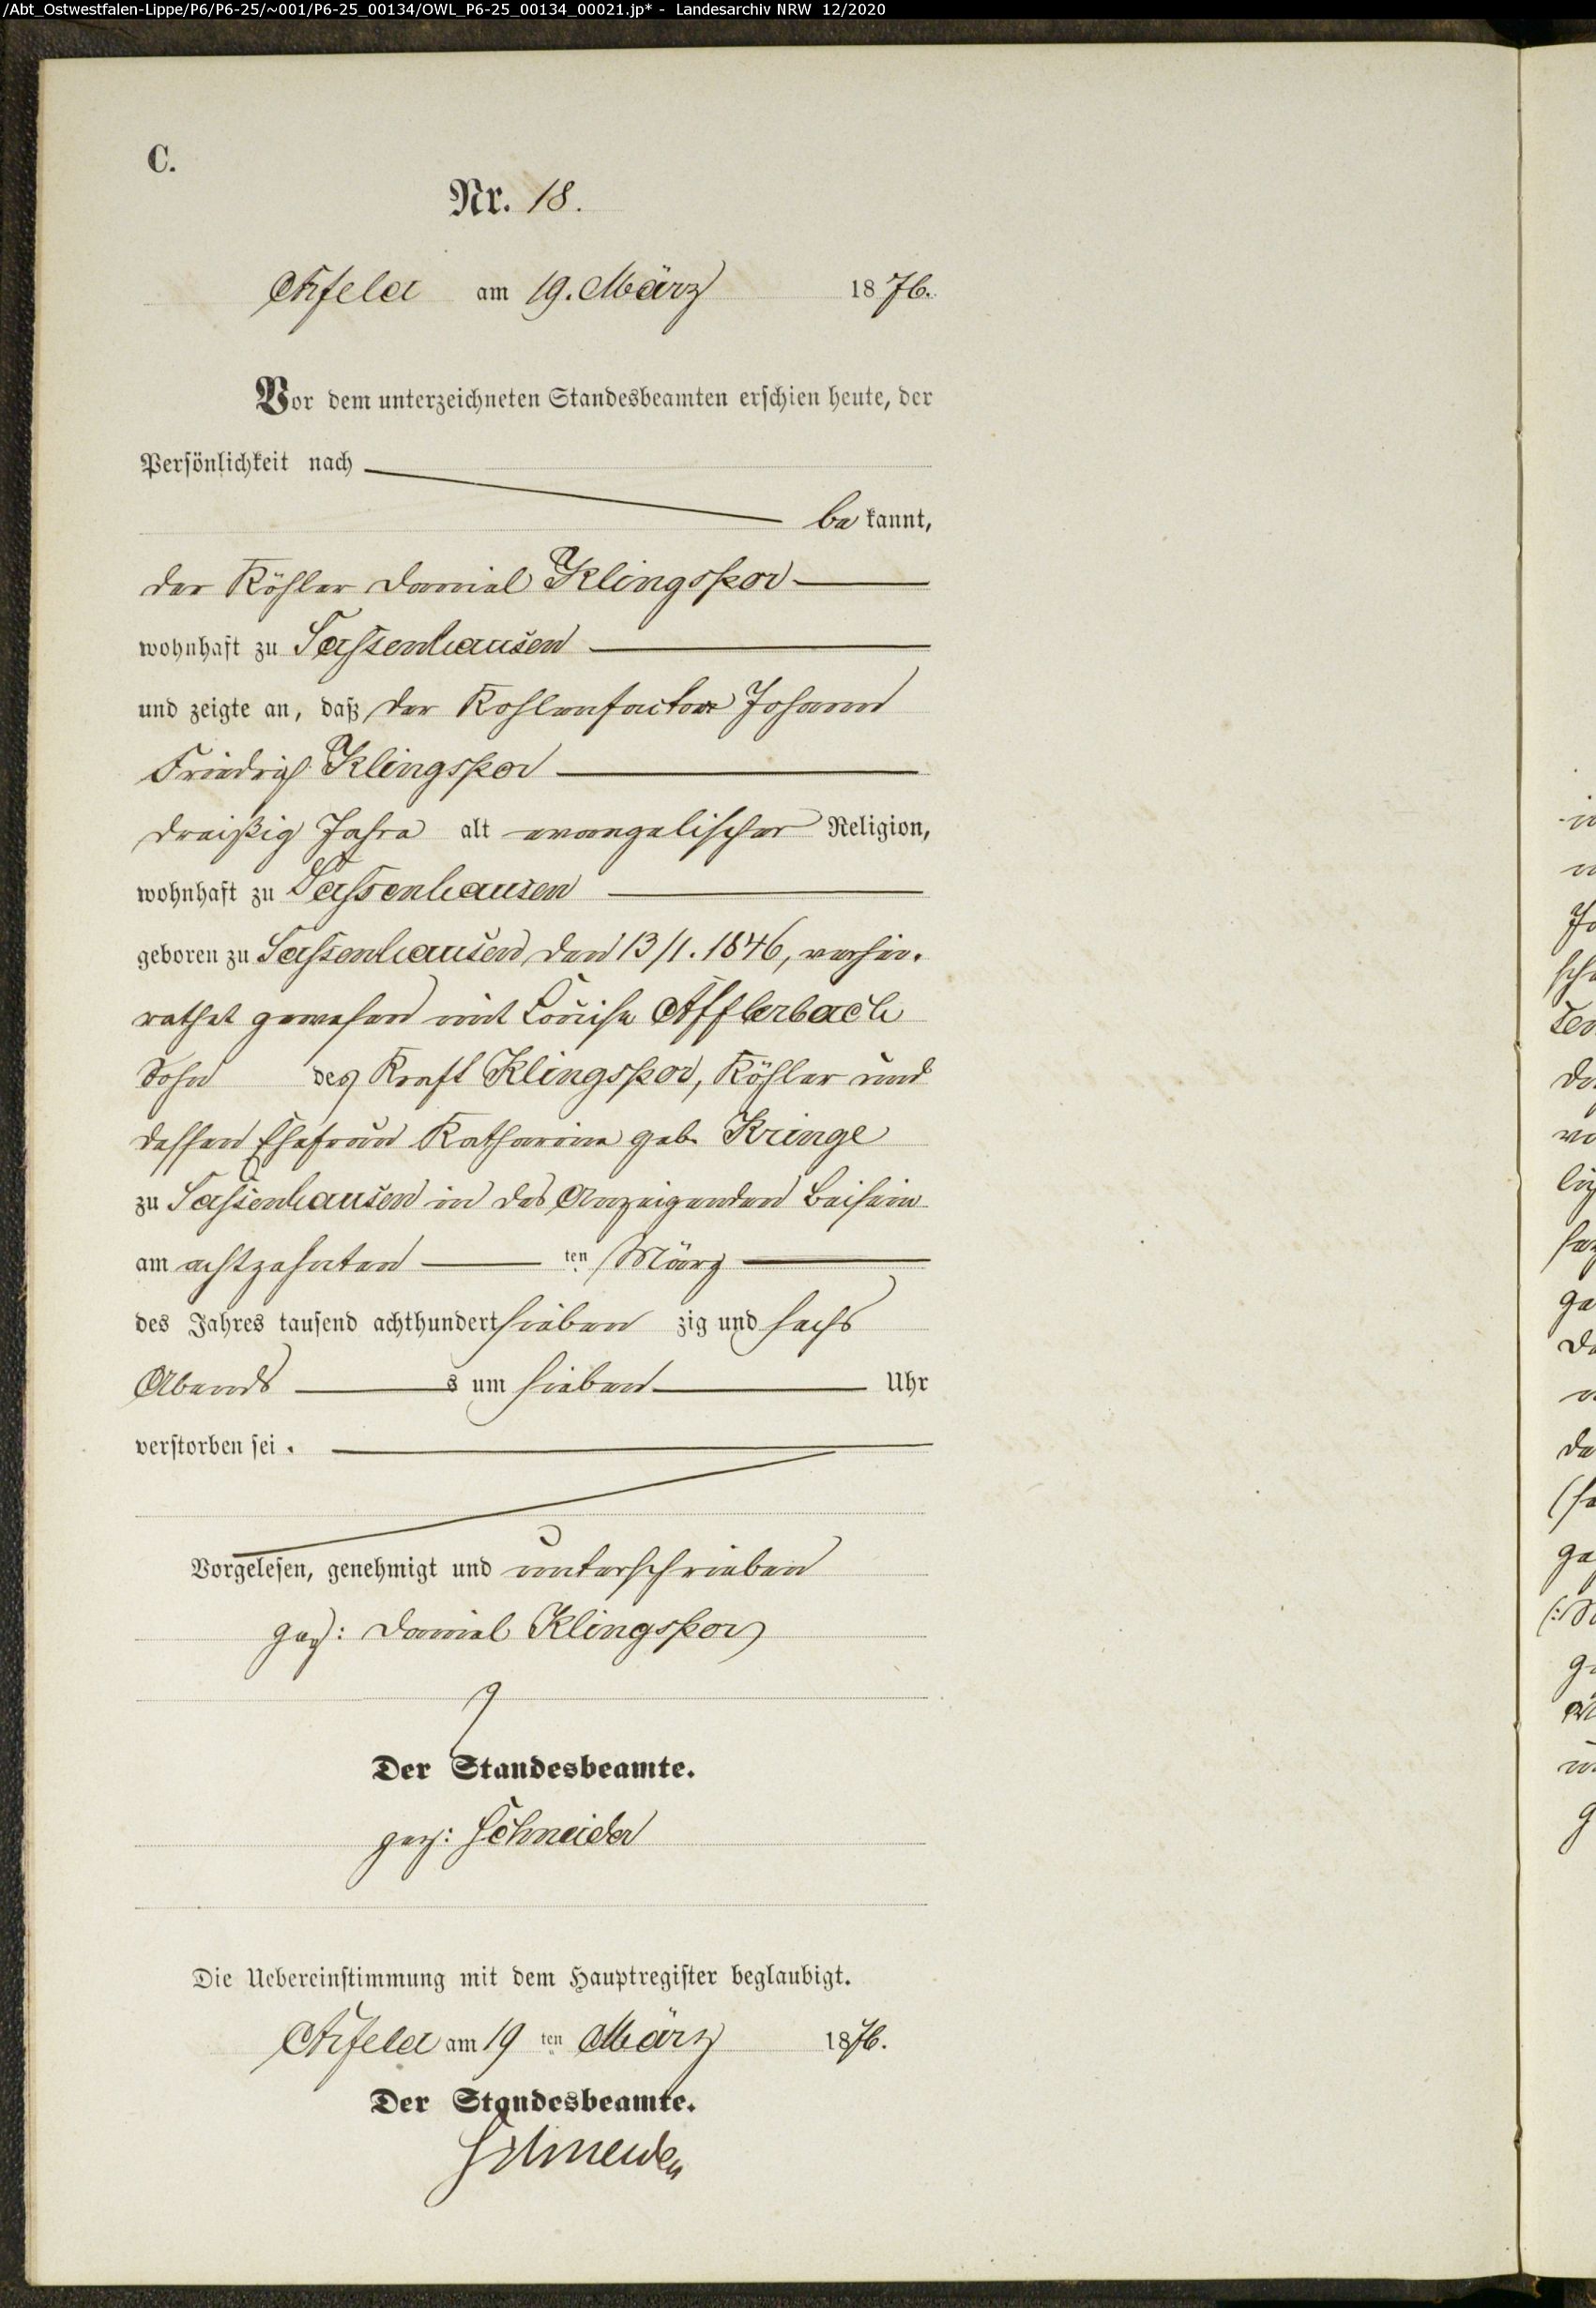 /Abt_Ostwestfalen-Lippe/P6/P6-25/~001/P6-25_00134/OWL_P6-25_00134_00021.jp* - Landesarchiv NRW 12/2020
C.
Nr. 18.
Arfeld am 19. März 1876.
Vor dem unterzeichneten Standesbeamten erschien heute, der
Persönlichkeit nach
bekannt,
der Köhler Daniel Klingspor
wohnhaft zu Sassenhausen
und zeigte an, daß der Kohlenfactor Johann
Friedrich Klingspor
dreißig Jahre alt evangelischer Religion,
wohnhaft zu Sassenhausen
geboren zu Sassenhausen den 13/1. 1846, verhei-
rathet gewesen mit Louise Afflerbach
Sohn des Kraft Klingspor, Köhler und
dessen Ehefrau Katharine geb. Kringe
zu Sassenhausen in des Anzeigenden Beisein
am achtzehnten ten März
des Jahres tausend achthundert sieben zig und sechs
Abends s um sieben Uhr
verstorben sei.
Vorgelesen, genehmigt und unterschrieben
gez: Daniel Klingspor
Der Standesbeamte.
gez: Schneider
Die Uebereinstimmung mit dem Hauptregister beglaubigt.
Arfeld am 19 ten März 1876.
Der Standesbeamte.
Schneider